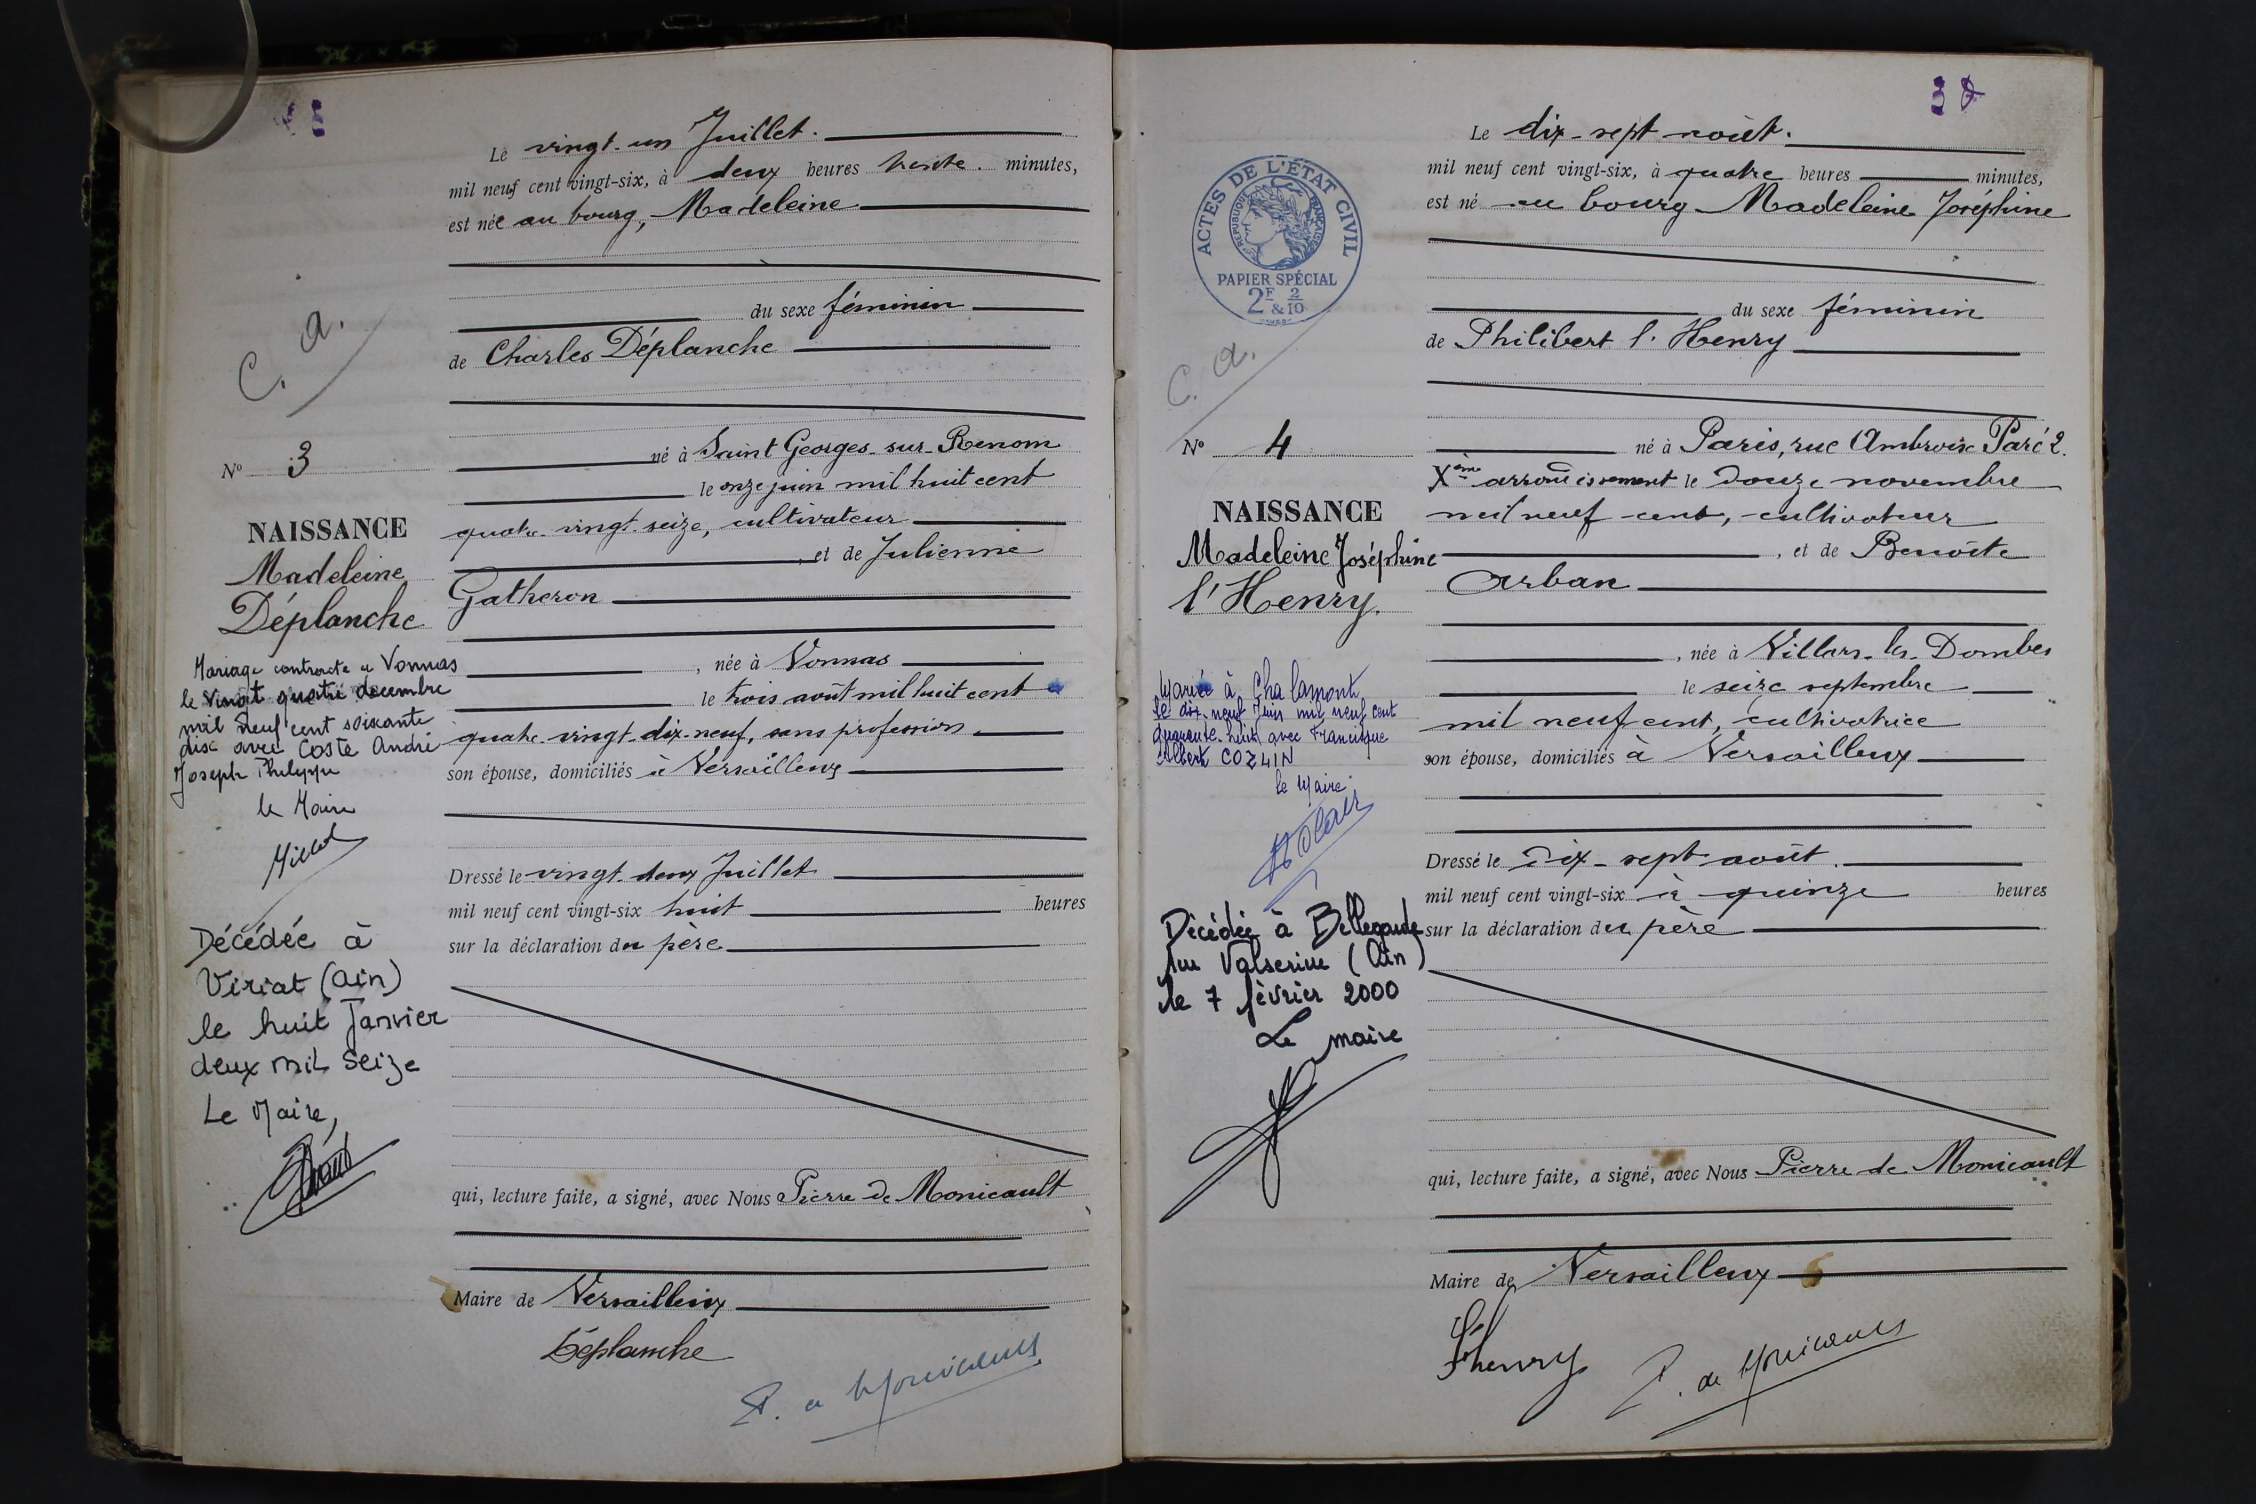 Le vingt-un Juillet.
mil neuf cent vingt-six, à deux heures trente. minutes,
est née au bourg, Madeleine
du sexe féminin
de Charles Déplanche
né à Saint Georges-sur-Renom
le onze juin mil huit cent
quatre-vingt-seize, cultivateur
, et de Julienne
Gatheron
, née à Vonnas
le trois août mil huit cent
quatre-vingt-dix-neuf, sans profession
son épouse, domiciliés à Versailleux
Dressé le vingt-deux Juillet
mil neuf cent vingt-six huit heures
sur la déclaration du père
qui, lecture faite, a signé, avec Nous Pierre de Monicault
Maire de Versailleux
Déplanche
P. de Monicault
C. a.
N° 3
NAISSANCE
Madeleine
Déplanche
Mariage contracté à Vonnas
le vingt quatre decembre
mil neuf cent soixante
disc avec Coste André
Joseph Philippe
le Maire
Décédée à
Viriat (Ain)
le huit Janvier
deux mil seize
Le Maire,
37
Le dix-sept août.
mil neuf cent vingt-six, à quatre heures minutes,
est né au bourg Madeleine Joséphine
du sexe féminin
de Philibert l'Henry
né à Paris, rue Ambroise Paré 2.
Xème arrondissement le douze novembre
mil neuf cent, cultivateur
, et de Benoîte
Arban
, née à Villars-les-Dombes
le seize septembre
mil neuf cent, cultivatrice
son épouse, domiciliés à Versailleux
Dressé le dix-sept août.
mil neuf cent vingt-six à quinze heures
sur la déclaration du père
qui, lecture faite, a signé, avec Nous Pierre de Monicault
Maire de Versailleux
Lhenry
P. de Monicault
ACTES DE L'ÉTAT CIVIL
RÉPUBLIQUE FRANÇAISE
PAPIER SPÉCIAL
2F & 2/10
C. a.
N° 4
NAISSANCE
Madeleine Joséphine
l'Henry.
Mariée à Chalamont
le dix-neuf Juin mil neuf cent
quarante-huit avec Francisque
Albert COZLIN
le Maire
Décédée à Bellegarde
sur Valserine (Ain)
le 7 février 2000
Le maire